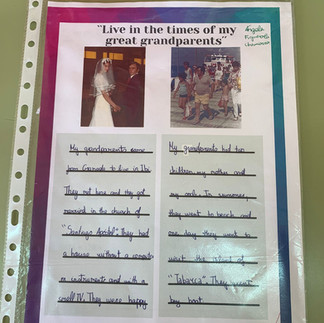 "Live in the times of my
great grandparents"
Angela
My grandparents came
from Granada to live in Ibi
They met here and they got
married in the church of
"Santiago Apostol". They had
a house without a remote
or instruments and with a
small TV. They were happy
My grandparents had two
children my mother and
my uncle. In summer,
they went to beach and
one day they went to
visit the island of
"Tabarca". They went
by boat.